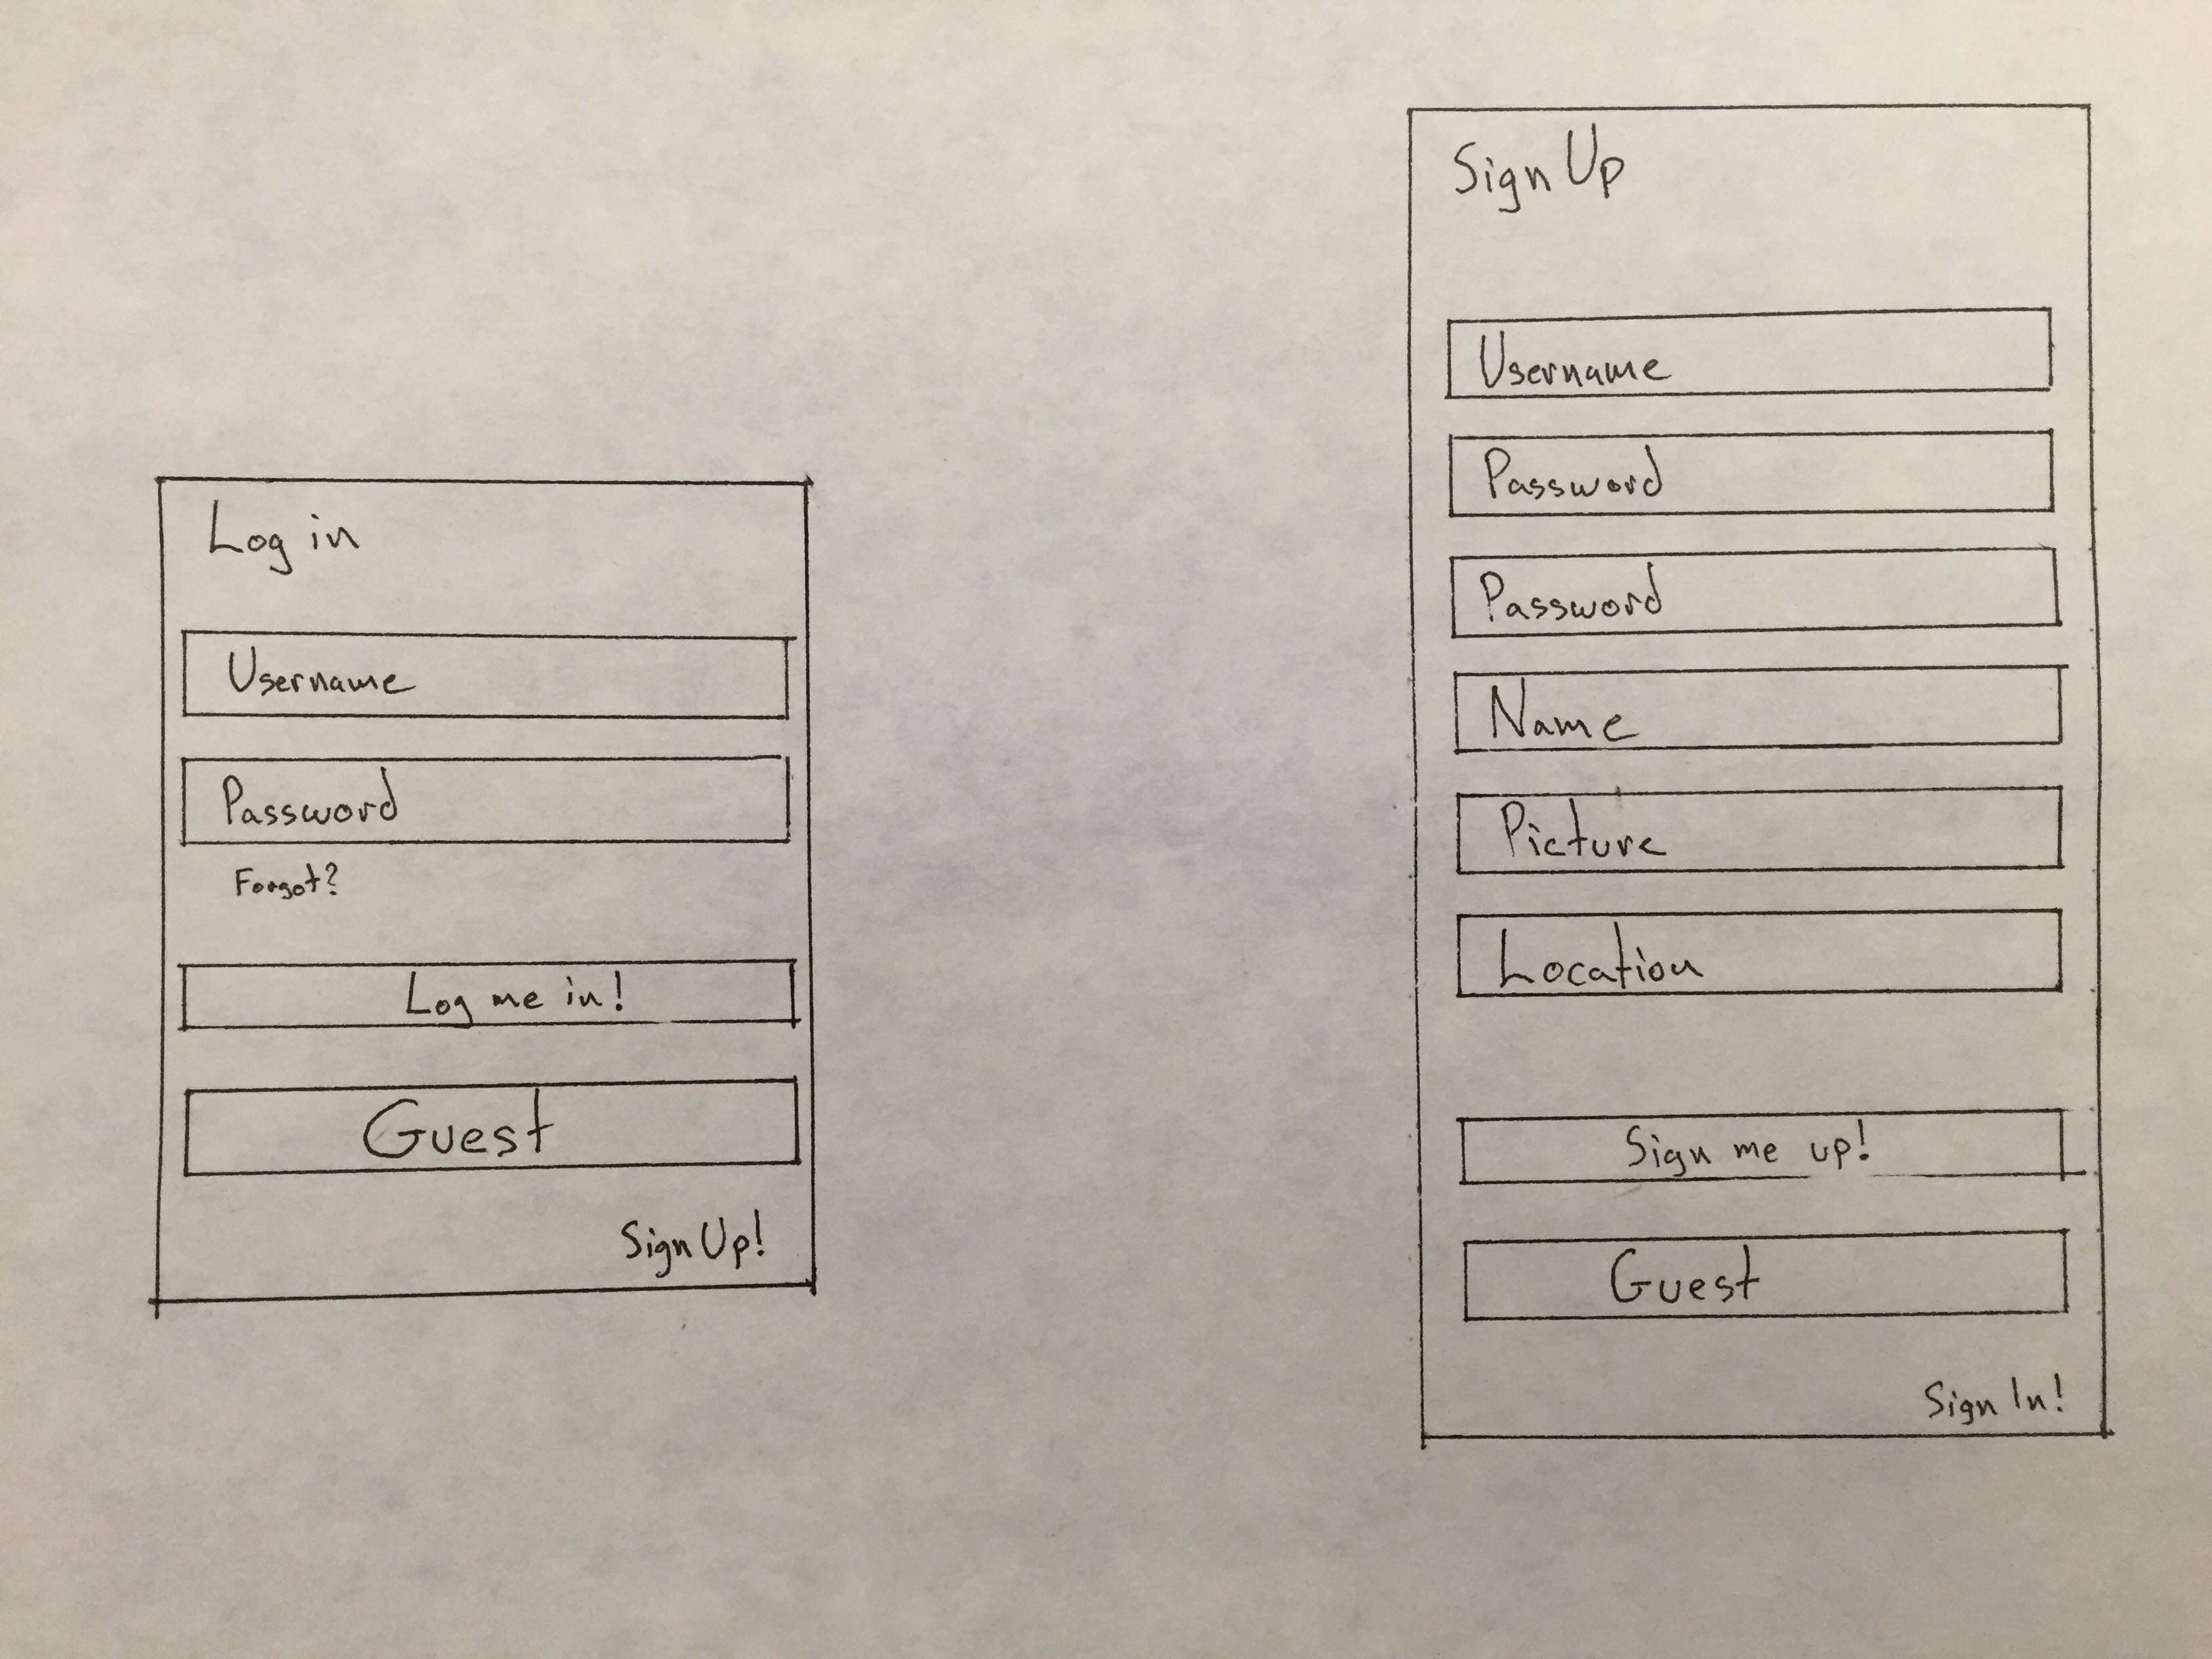 Log in
Username
Password
Forgot?
Log me in!
Guest
Sign Up!
Sign Up
Username
Password
Password
Name
Picture
Location
Sign me up!
Guest
Sign In!